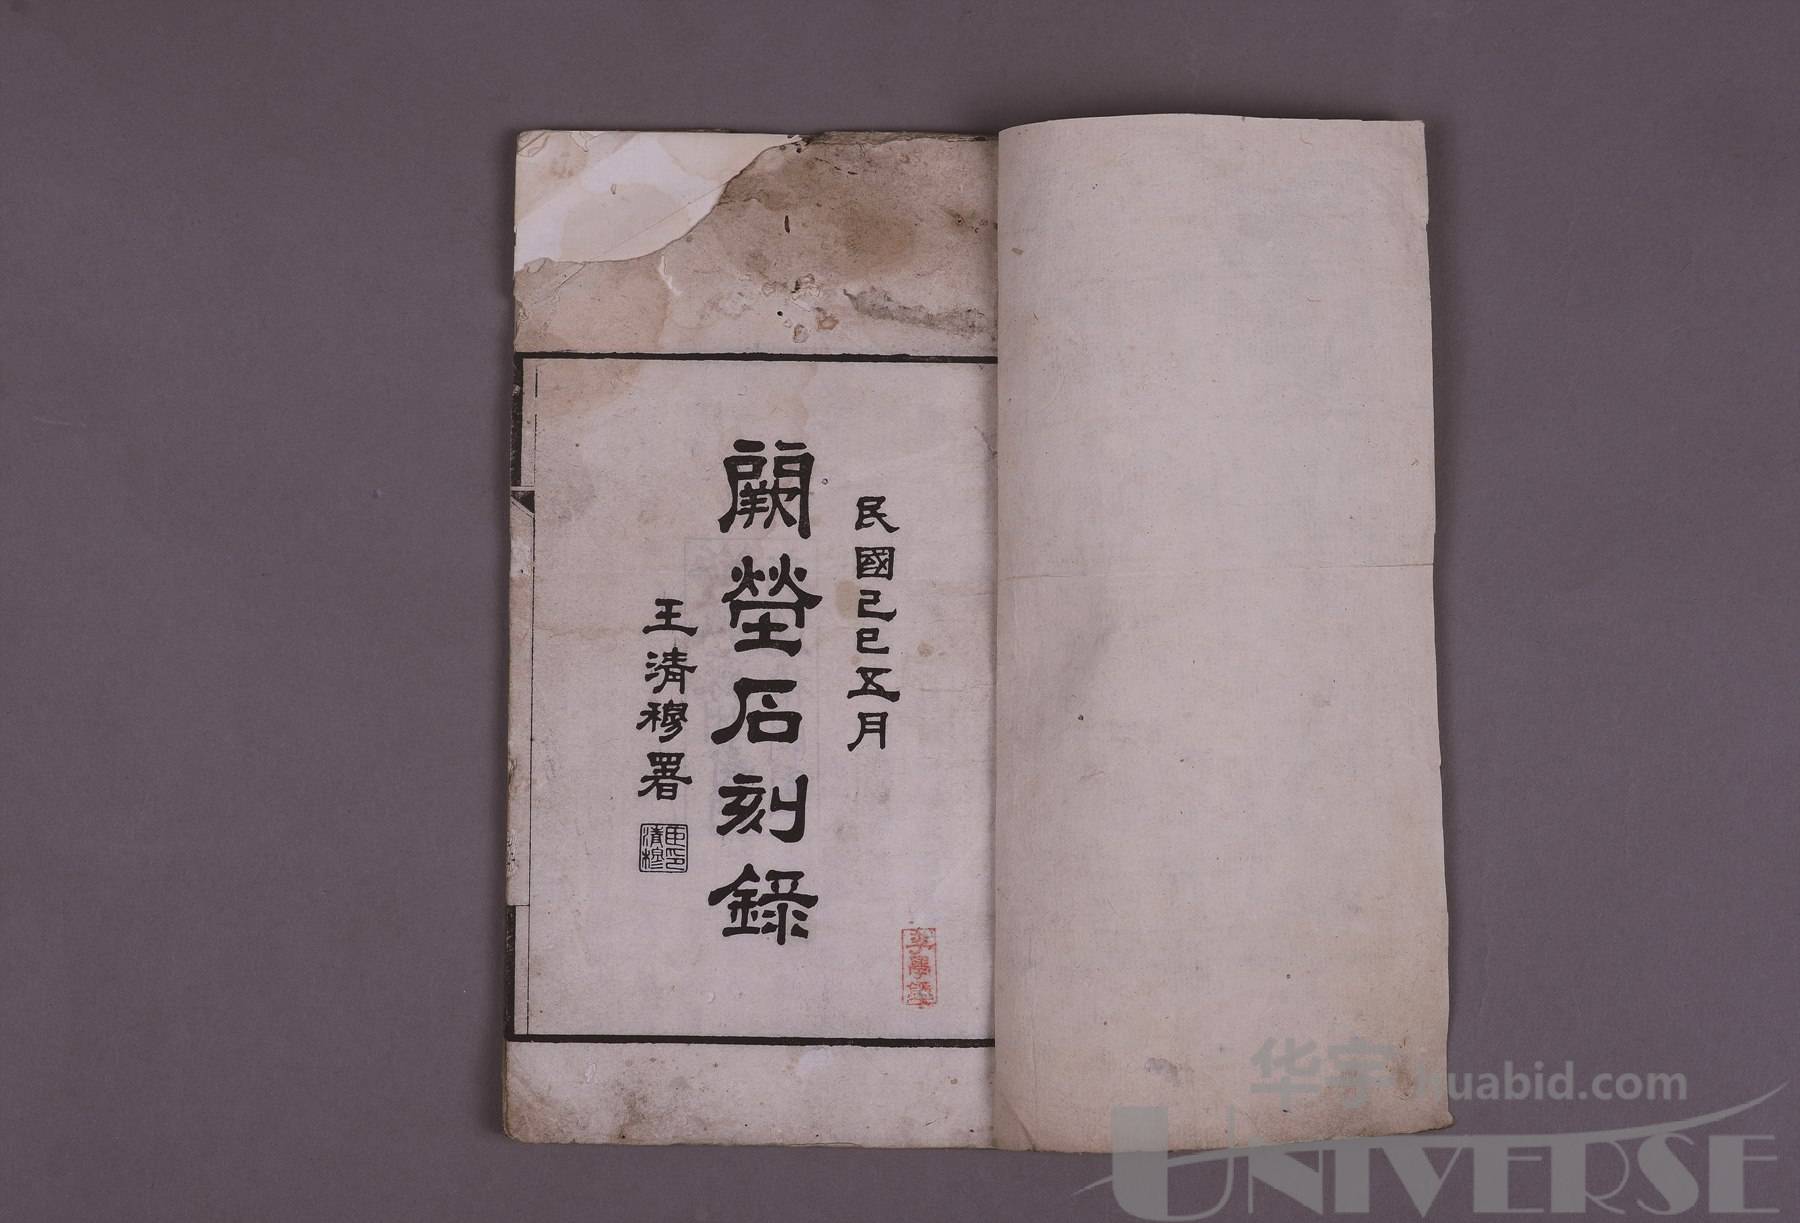 民國己巳五月
闕塋石刻錄
王清穆署
臣印清穆
华宇 huabid.com
UNIVERSE